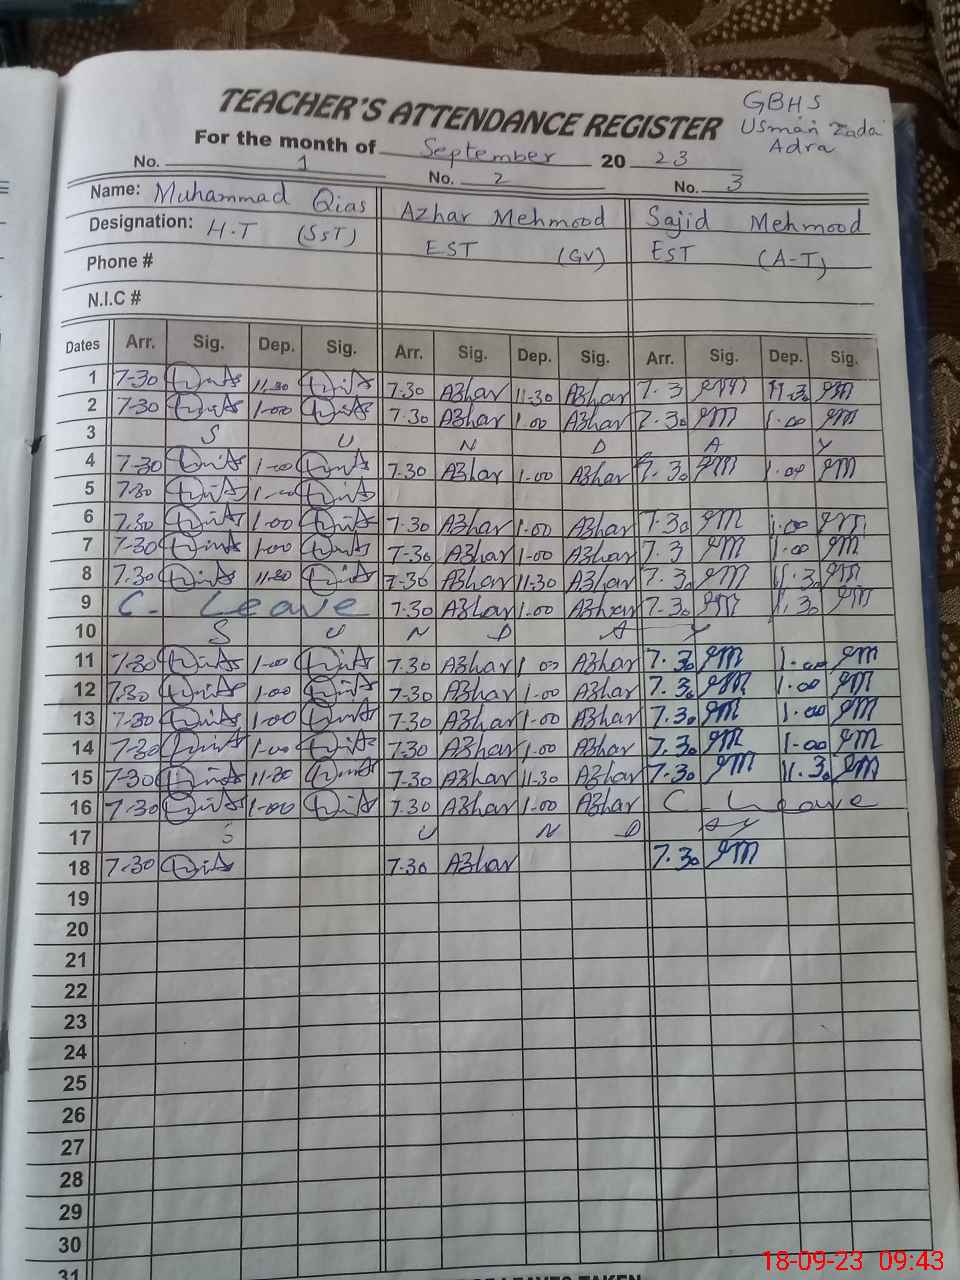 TEACHER'S ATTENDANCE REGISTER
GBHS
Usman Zada
Adra
For the month of September 20 23
No. 1 No. 2 No. 3
Name: Muhammad Qias Azhar Mehmood Sajid Mehmood
Designation: H.T (SST) EST (GV) EST (A-T)
Phone #
N.I.C #
Dates Arr. Sig. Dep. Sig. Arr. Sig. Dep. Sig. Arr. Sig. Dep. Sig.
1 7-30 11-30 7.30 Azhar 11-30 Azhar 7.3 11.30
2 7-30 1-00 7.30 Azhar 1.00 Azhar 7.30 1.00
3 S U N D A Y
4 7-30 1-00 7.30 Azhar 1-00 Azhar 7.30 1.00
5 7-30 1-00
6 7.30 1-00 7-30 Azhar 1-00 Azhar 7.30 1.00
7 7-30 1-00 7-30 Azhar 1-00 Azhar 7.3 1.00
8 7.30 11-30 7-30 Azhar 11-30 Azhar 7.30 11.30
9 C. Leave 7.30 Azhar 1-00 Azhar 7.30 1.30
10 S U N D A Y
11 7-30 1-00 7.30 Azhar 1.00 Azhar 7.30 1.00
12 7.30 1-00 7-30 Azhar 1-00 Azhar 7.30 1.00
13 7-30 1-00 7-30 Azhar 1-00 Azhar 7.30 1.00
14 7-30 1-00 7.30 Azhar 1-00 Azhar 7.30 1-00
15 7-30 11-30 7-30 Azhar 11-30 Azhar 7-30 11.30
16 7-30 1-00 7.30 Azhar 1-00 Azhar C-Leave
17 S U N D A Y
18 7-30 7.30 Azhar 7.30
19
20
21
22
23
24
25
26
27
28
29
30
31
18-09-23 09:43